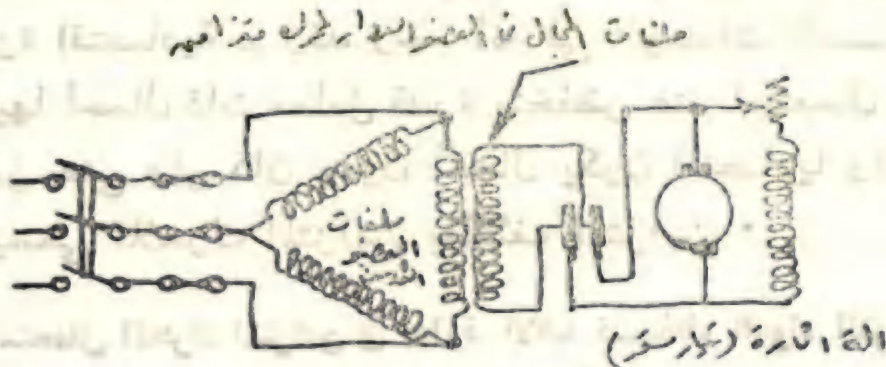 ملفات المجال في العضو الدوار لمحرك متزامن
ملفات
العضو
الثابت
الة اثارة (تيار مستمر)